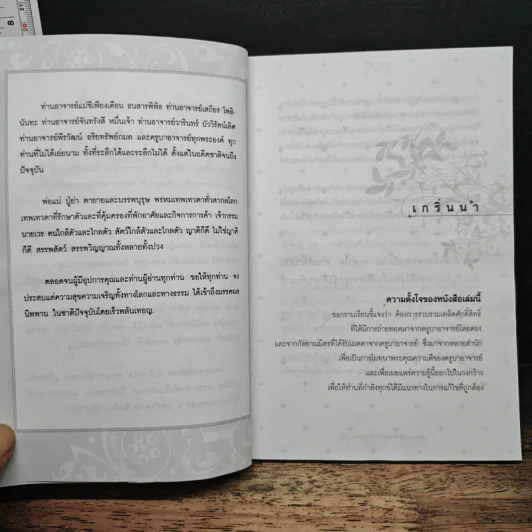 ท่านอาจารย์แม่ชีเพียงเดือน ธนสารพิพิธ ท่านอาจารย์เสถียร โพธิ-
นันทะ ท่านอาจารย์จันทรังสี หมื่นเจ้า ท่านอาจารย์วารินทร์ บัววิรัตน์เลิศ
ท่านอาจารย์พีรวัฒน์ อริยทรัพย์กมล และครูบาอาจารย์ทุกพระองค์ ทุก
ท่านที่ไม่ได้เอ่ยนาม ทั้งที่ระลึกได้และระลึกไม่ได้ ตั้งแต่ในอดีตชาติจนถึง
ปัจจุบัน
พ่อแม่ ปู่ย่า ตายายและบรรพบุรุษ พรหมเทพเทวดาทั่วสากลโลก
เทพเทวดาที่รักษาตัวและที่คุ้มครองที่พักอาศัยและกิจการการค้า เจ้ากรรม
นายเวร คนใกล้ตัวและไกลตัว สัตว์ใกล้ตัวและไกลตัว ญาติก็ดี ไม่ใช่ญาติ
ก็ดี สรรพสัตว์ สรรพวิญญาณทั้งหลายทั้งปวง
ตลอดจนผู้มีอุปการคุณและท่านผู้อ่านทุกท่าน ขอให้ทุกท่าน จง
ประสบแต่ความสุขความเจริญทั้งทางโลกและทางธรรม ได้เข้าถึงมรรคผล
นิพพาน ในชาติปัจจุบันโดยเร็วพลันเทอญ.
เกริ่นนำ
ความตั้งใจของหนังสือเล่มนี้
ขอกราบเรียนชี้แจงว่า ต้องการรวบรวมเคล็ดศักดิ์สิทธิ์
ที่ได้มีการถ่ายทอดมาจากครูบาอาจารย์โดยตรง
และจากกัลยาณมิตรที่ได้รับเมตตาจากครูบาอาจารย์ ซึ่งมาจากหลายสำนัก
เพื่อเป็นการโมทนาพระคุณความดีของครูบาอาจารย์
และเพื่อเผยแพร่ความรู้นี้ออกไปในวงกว้าง
เพื่อให้ท่านที่กำลังทุกข์ได้มีแนวทางในการแก้ไขที่ถูกต้อง